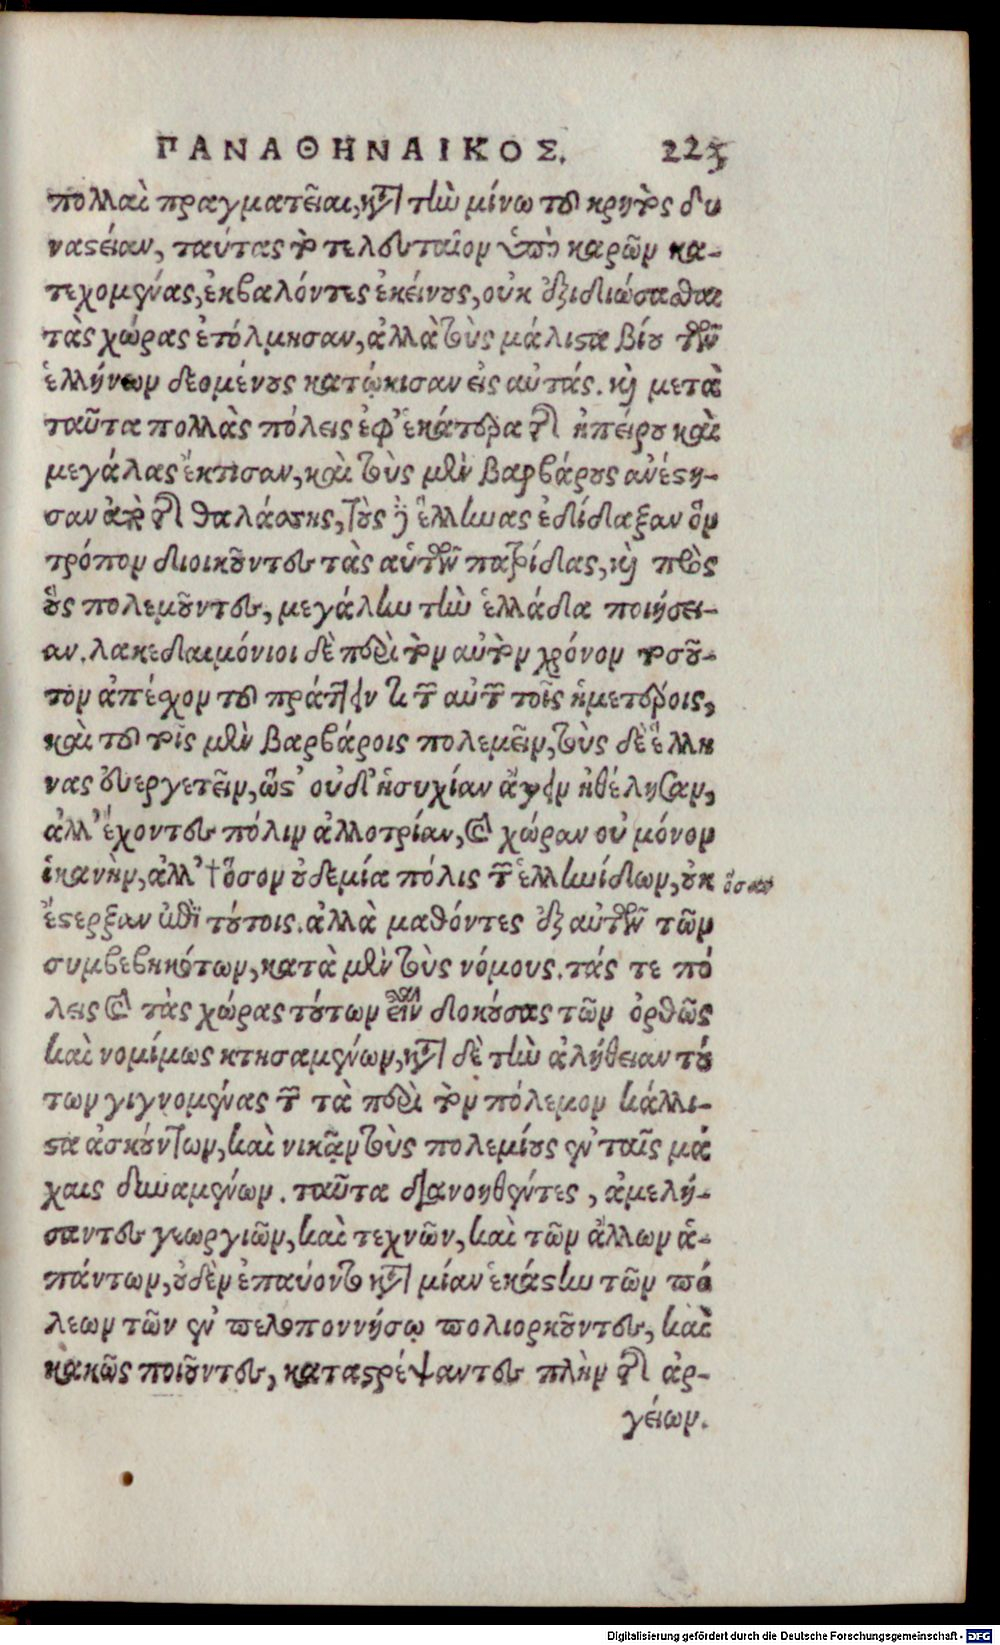 ΠΑΝΑΘΗΝΑΙΚΟΣ. 225
πολλαὶ πραγματεῖαι, κατὰ τὴν μίνω τοῦ κρητὸς δυ
ναϛείαν, ταύτας τὸ τελευταῖον ὑπὸ καρῶν κα-
τεχομένας, ἐκβαλόντες ἐκείνους, οὐκ ἐξιδιώσασθαι
τὰς χώρας ἐτόλμησαν, ἀλλὰ τοὺς μάλιϛα βίου τῶν
ἑλλήνων δεομένους κατῴκισαν εἰς αὐτάς. καὶ μετὰ
ταῦτα πολλὰς πόλεις ἐφ' ἑκάτερα τῆς ἠπείρου καὶ
μεγάλας ἔκτισαν, καὶ τοὺς μὲν βαρβάρους ἀνέϛη-
σαν ἀπὸ τῆς θαλάσσης, τοὺς δ' ἕλληνας ἐδίδαξαν ὃν
τρόπον διοικοῦντες τὰς αὑτῶν πατρίδας, καὶ πρὸς
οὓς πολεμοῦντες, μεγάλην τὴν ἑλλάδα ποιήσει-
αν. λακεδαιμόνιοι δὲ περὶ τὸν αὐτὸν χρόνον τοσοῦ-
τον ἀπέχον τοῦ πράττειν τι τῶν αὐτῶν τοῖς ἡμετέροις,
καὶ τοῦ τοῖς μὲν βαρβάροις πολεμεῖν, τοὺς δὲ ἕλλη
νας εὐεργετεῖν, ὥϛ' οὐδ' ἡσυχίαν ἄγειν ἠθέλησαν,
ἀλλ' ἔχοντες πόλιν ἀλλοτρίαν, καὶ χώραν οὐ μόνον
ἱκανὴν, ἀλλ' †ὅσον οὐδεμία πόλις τῶν ἑλληνίδων, οὐκ ὅσην
ἔϛερξαν ἐπὶ τούτοις. ἀλλὰ μαθόντες ἐξ αὐτῶν τῶν
συμβεβηκότων, κατὰ μὲν τοὺς νόμους. τάς τε πό
λεις καὶ τὰς χώρας τούτων εἶναι δοκούσας τῶν ὀρθῶς
καὶ νομίμως κτησαμένων, κατὰ δὲ τὴν ἀλήθειαν τού
των γιγνομένας τῶν τὰ περὶ τὸν πόλεμον κάλλι-
ϛα ἀσκούντων, καὶ νικᾷν τοὺς πολεμίους ἐν ταῖς μά
χαις δυναμένων. ταῦτα διανοηθέντες, ἀμελή-
σαντες γεωργιῶν, καὶ τεχνῶν, καὶ τῶν ἄλλων ἁ-
πάντων, οὐδὲν ἐπαύοντο κατὰ μίαν ἑκάϛην τῶν πό
λεων τῶν ἐν πελοποννήσῳ πολιορκοῦντες, καὶ
κακῶς ποιοῦντες, καταϛρέψαντες πλὴν τῆς ἀρ-
γείων.
Digitalisierung gefördert durch die Deutsche Forschungsgemeinschaft - DFG